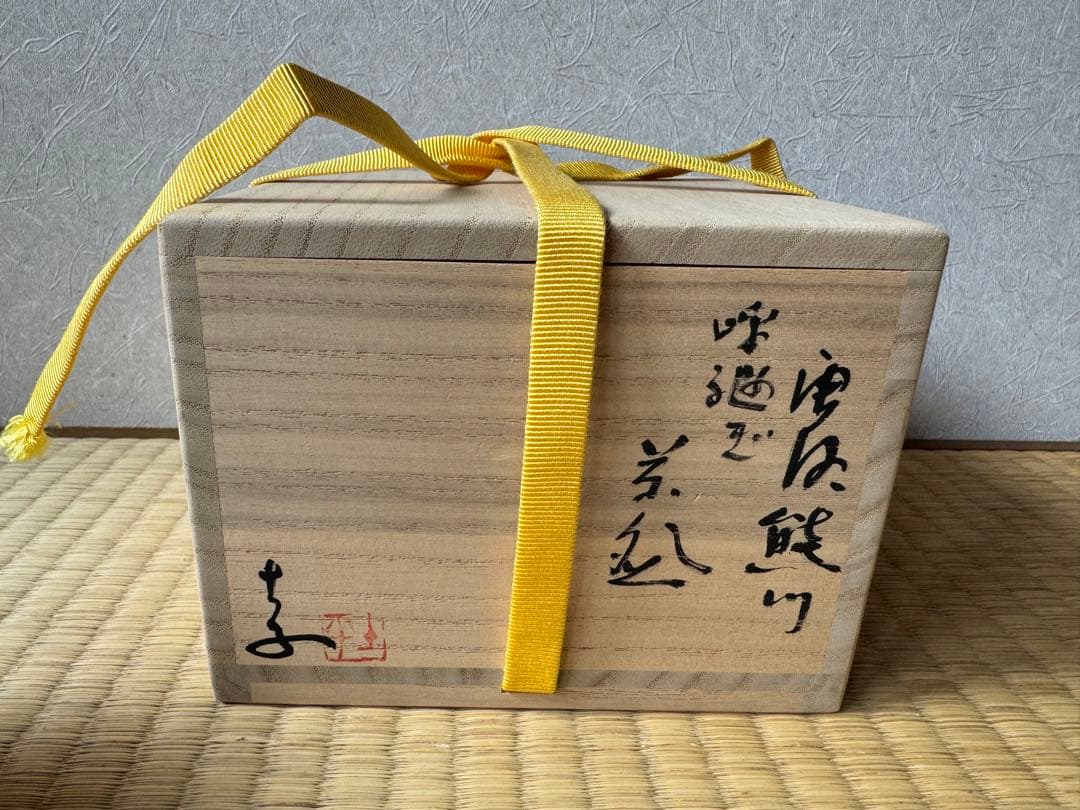 唐津熊川
呼継ぎ
茶盌